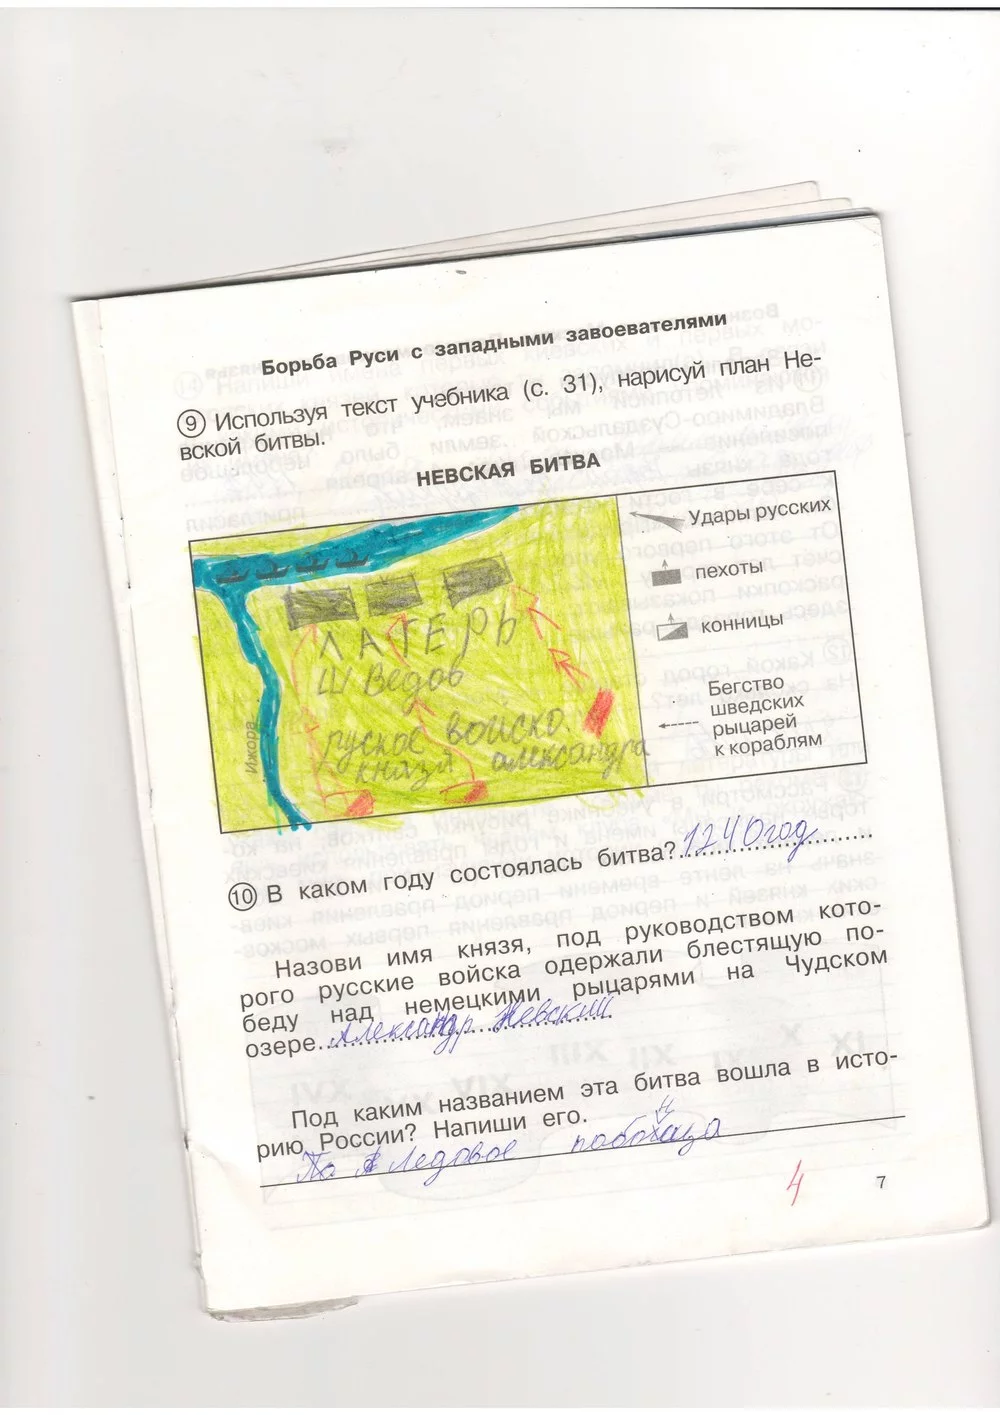 Борьба Руси с западными завоевателями
9 Используя текст учебника (с. 31), нарисуй план Не-
вской битвы.
НЕВСКАЯ БИТВА
ЛАГЕРЬ
Шведов
руское войско
князя александра
Ижора
Удары русских
пехоты
конницы
Бегство
шведских
рыцарей
к кораблям
10 В каком году состоялась битва? 1240 год
Назови имя князя, под руководством кото-
рого русские войска одержали блестящую по-
беду над немецкими рыцарями на Чудском
озере. Александр Невский
Под каким названием эта битва вошла в исто-
рию России? Напиши его.
Ледовое
4
7